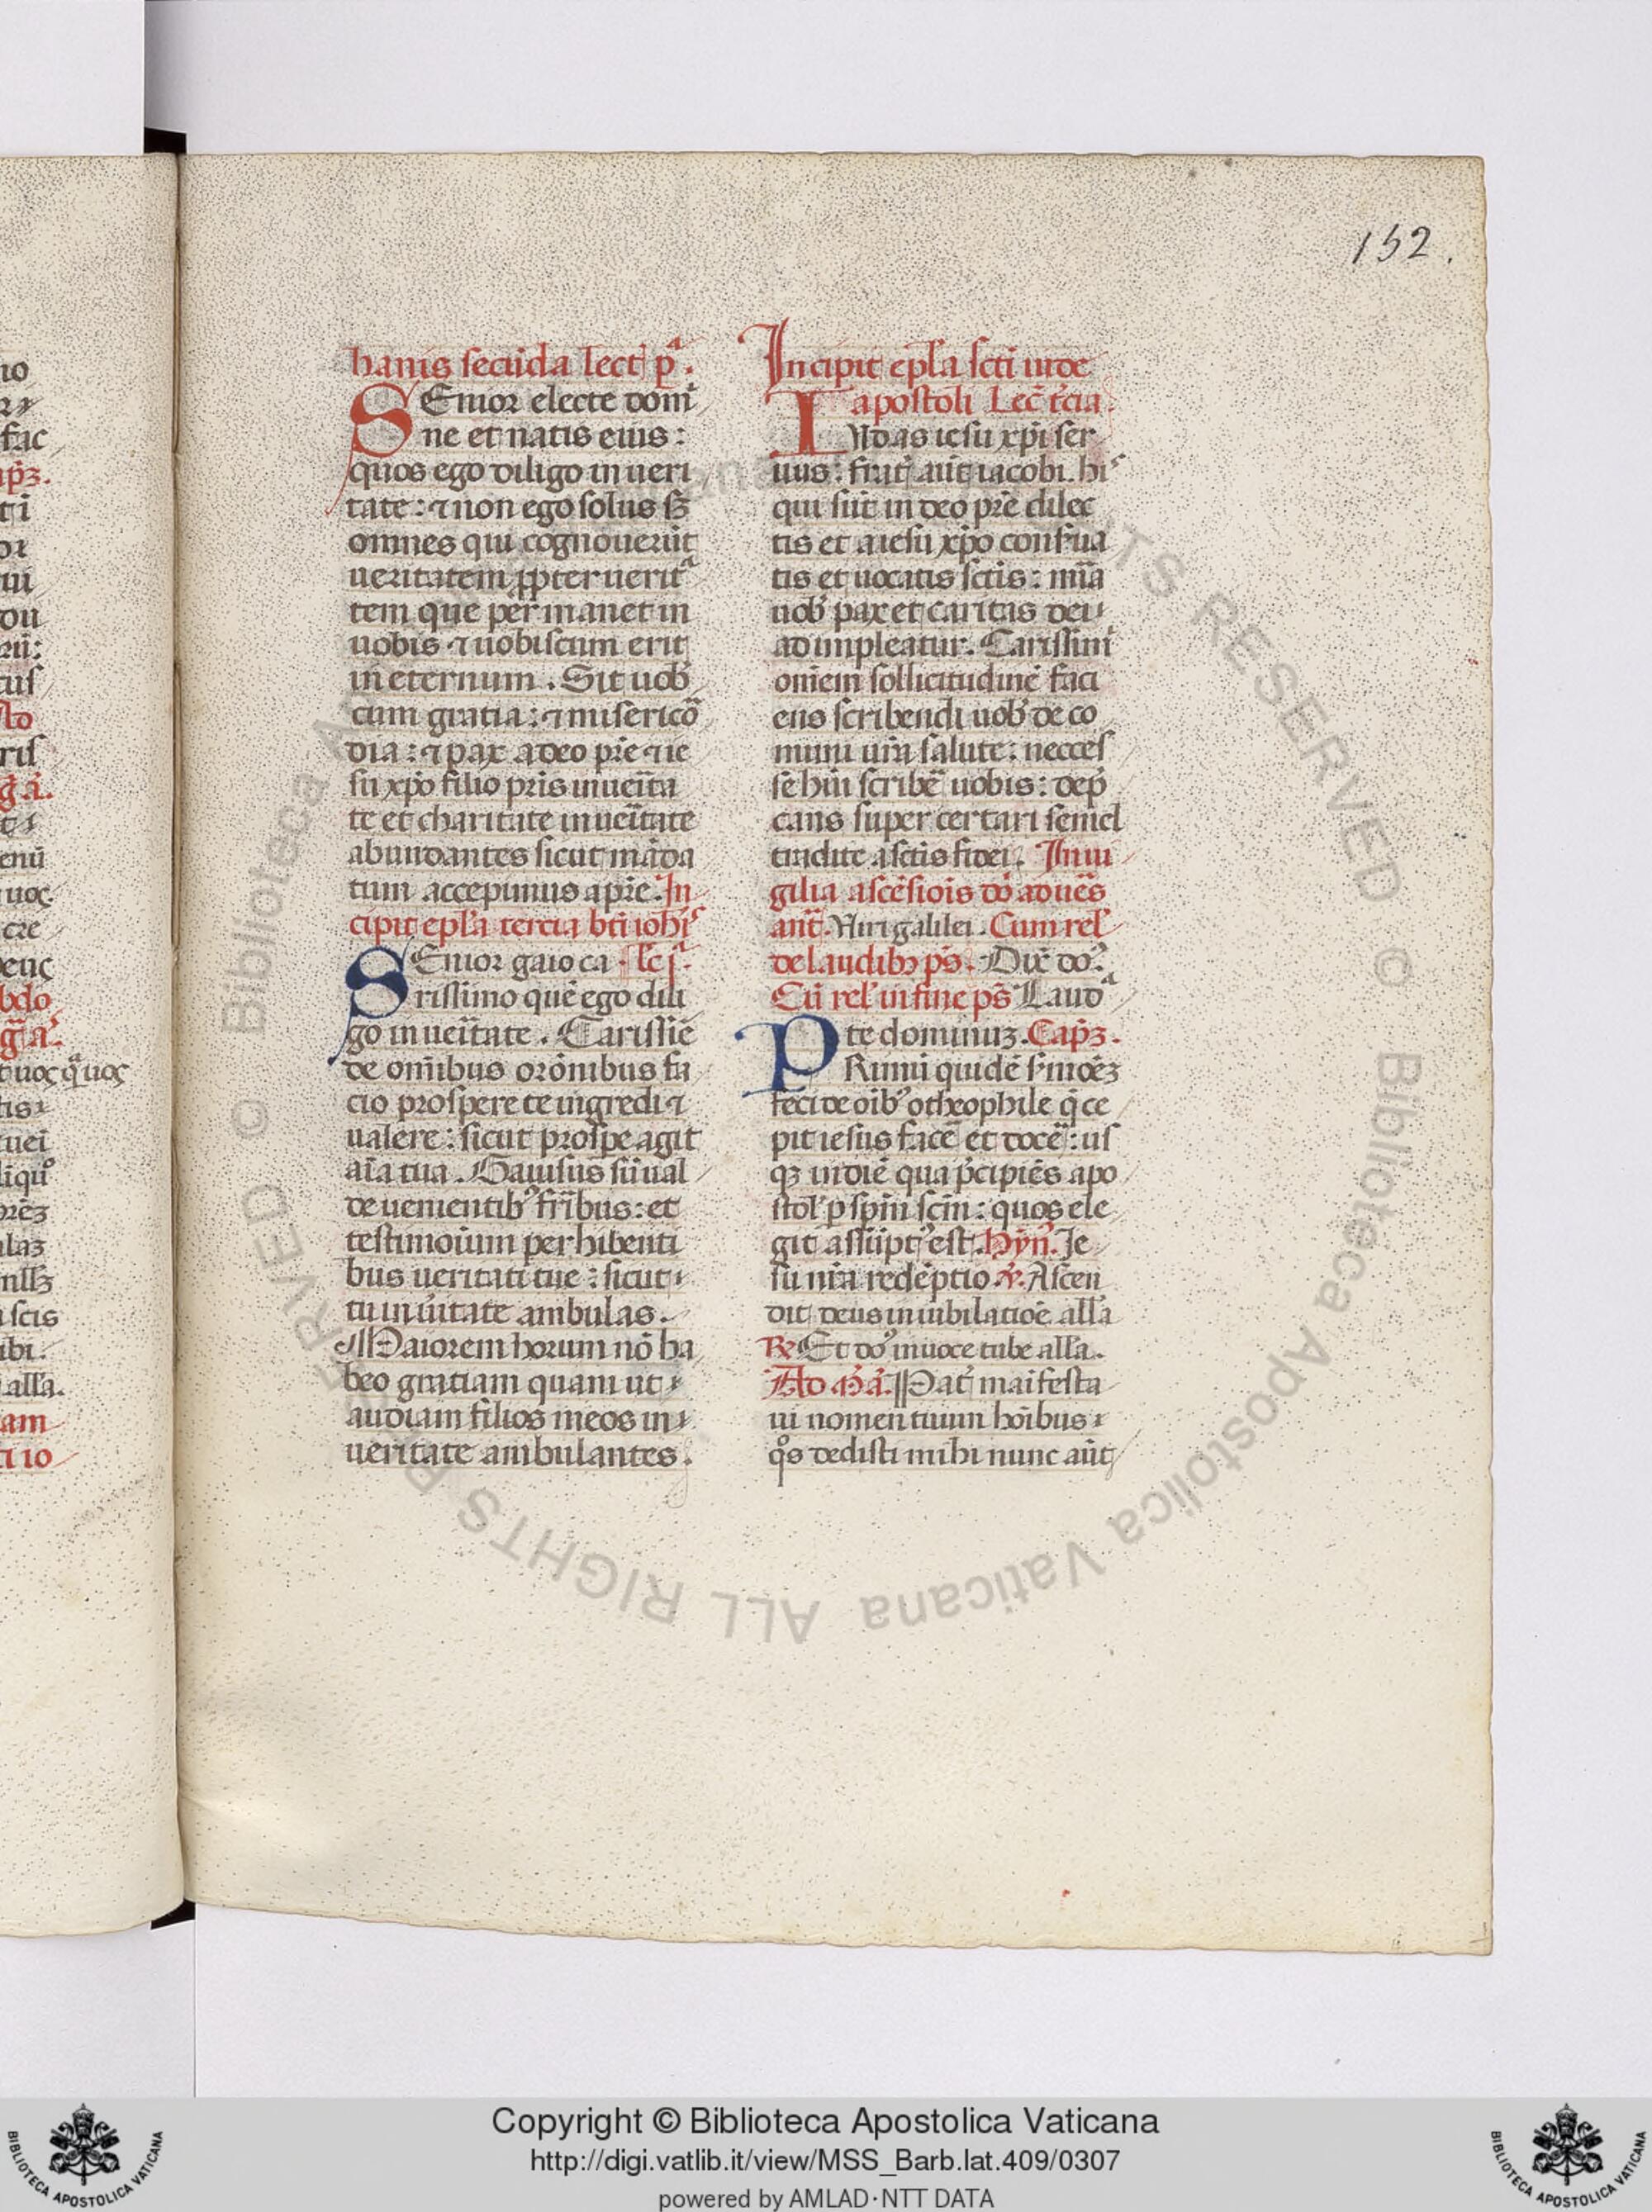 152.
hanis secūda lect p͞a.
SEnior electe domi
ne et natis eius:
quos ego diligo in veri
tate: ⁊ non ego solus sꝫ
omnes qui cognouerūt
ueritatem ꝓpter ueritᵃ
tem que permanet in
uobis ⁊ uobiscum erit
in eternum. Sit uob
cum gratia: ⁊ misericō
dia: ⁊ pax a deo pr̄e ⁊ ie
su xp̄o filio pr̄is in ueīta
te et charitate in ueītate
abundantes sicut māda
tum accepimus a pr̄e. In
cipit epl̄a tercia bt̄i ioh̄is
SEnior gaio ca lc̄ j.
rissimo quē ego dili
go in ueītate. Carissīe
de om̄ibus orōnibus fa
cio prospere te ingredi ⁊
ualere: sicut prospe agit
aīa tua. Gauisus sū ual
de uenientibꝰ fr̄ibus: et
testimoīum perhibenti
bus ueritati tue: sicut
tu in uītate ambulas.
Maiorem horum nō ha
beo gratiam quam ut
audiam filios meos in
ueritate ambulantes.
Incipit epl̄a sc̄ti iude
apostoli Lec̄ t̄cia.
IUdas iesu xp̄i ser
uus: frat̄ aūt iacobi. hiˢ
qui sūt in deo pr̄e dilec
tis et a iesu xp̄o conẜua
tis et uocatis sc̄tis: mīa
uob pax et caritas dei
adimpleatur. Carissimi
om̄em sollicitudinē faci
ens scribendi uob de co
muni ur̄a salute: necces
se hūi scribē uobis: dep̄
cans super certari semel
tradite a sc̄tis fidei. In ui
gilia ascēsiois dō ad uēs
ant̄. Uiri galilei. Cum rel
de laudibꝫ ps̄. Dix̄ dōꝰ.
Cū rel in fine ps̄ Laudᵃ
te dominuꝫ. Cap̄ꝫ.
PRimū quidē ẜmoēꝫ
feci de oībꝰ o theophile q̄ ce
pit iesus facē et docē: us
qꝫ in diē qua p̄cipiēs apo
stol p sp̄m sc̄m: quos ele
git assūptꝰ est. Hȳn̄. Ie
su nr̄a redēptio. ℣. Ascen
dit deus in iubilatiōe all̄a
℞ Et dōꝰ in uoce tube all̄a.
Ad m̄a. Pat̄ maifesta
ui nomen tuum hoībus
qͦs dedisti mihi nunc aūt
Copyright © Biblioteca Apostolica Vaticana
http://digi.vatlib.it/view/MSS_Barb.lat.409/0307
powered by AMLAD·NTT DATA